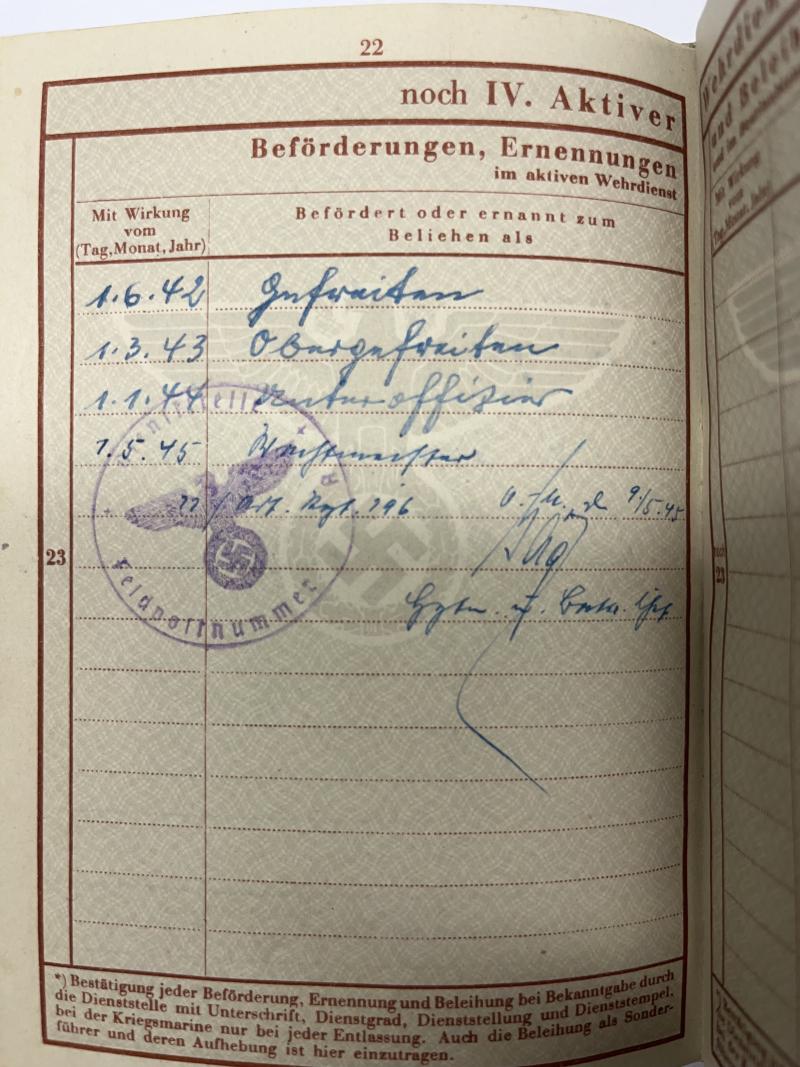 22
noch IV. Aktiver
Beförderungen, Ernennungen
im aktiven Wehrdienst
Mit Wirkung
vom
(Tag, Monat, Jahr)
Befördert oder ernannt zum
Beliehen als
1.6.42 Gefreiten
1.3.43 Obergefreiten
1.1.44 Unteroffizier
1.5.45 Wachtmeister
Dienststelle
Art. Rgt. 196 O. U. d 9/5.45
23
Feldpostnummer
Hptm. u. Battr. Chef
*) Bestätigung jeder Beförderung, Ernennung und Beleihung bei Bekanntgabe durch
die Dienststelle mit Unterschrift, Dienstgrad, Dienststellung und Dienststempel,
bei der Kriegsmarine nur bei jeder Entlassung. Auch die Beleihung als Sonder-
führer und deren Aufhebung ist hier einzutragen.